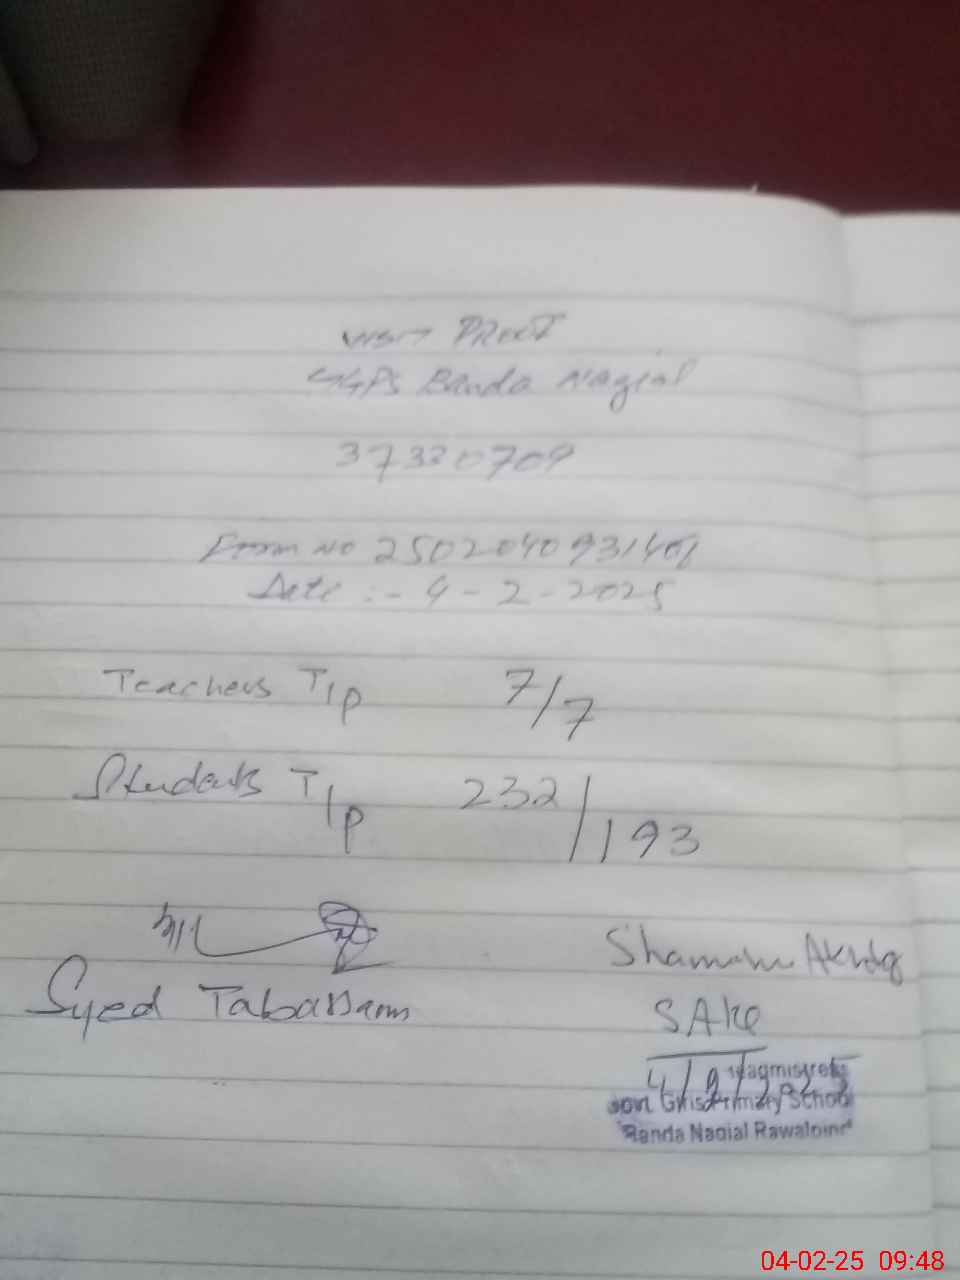 Visit Proof
GGPS Banda Nagial
37330709
Form No 2502040931401
Date :- 4-2-2025
Teachers T/P 7/7
Students T/P 232/193
Syed Tabassam
Shamim Akhtar
4/2/25
Govt. Girls Primary School
Banda Nagial Rawalpindi
04-02-25 09:48